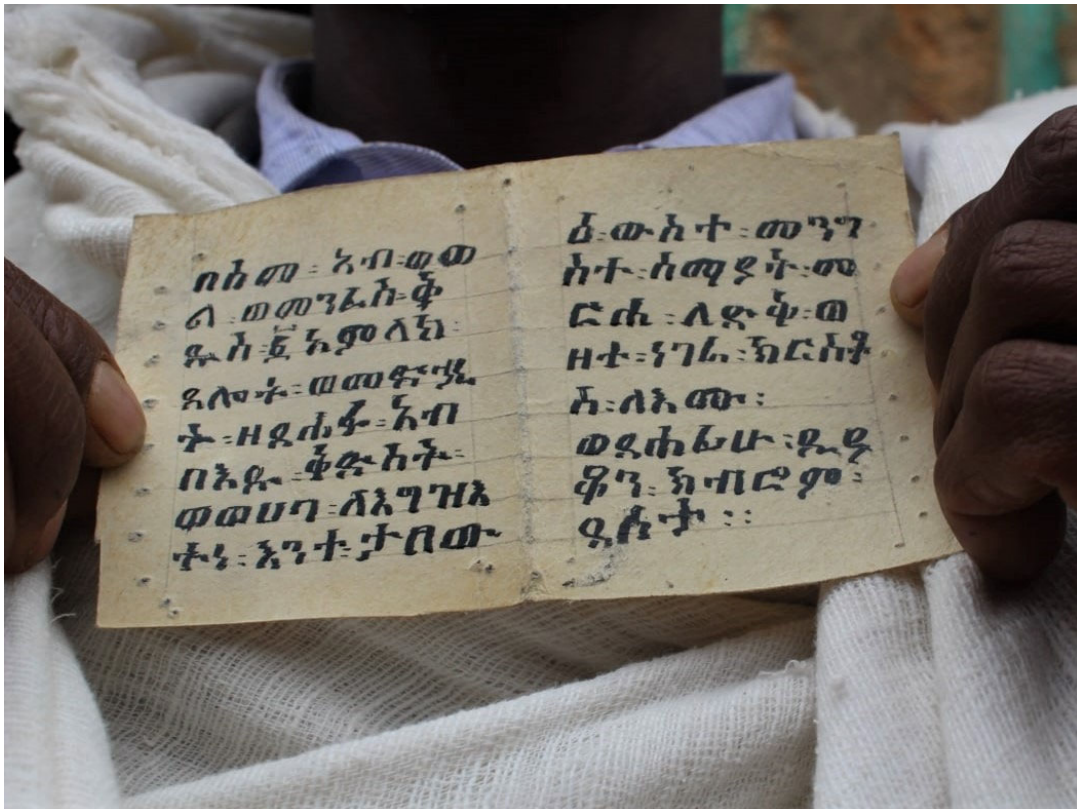 በስመ፡አብ፡ወወ
ልድ፡ወመንፈስ፡ቅ
ዱስ፡፩አምላክ፡
ጸሎት፡ወመድኃኒ
ት፡ዘጸሐፋ፡አብ
በእዱ፡ቅድስት፡
ወወሀባ፡ለእግዝእ
ትነ፡እንተ፡ታበውእ
ውስተ፡መንግ
ስተ፡ሰማያት፡መ
ርሐ፡ለጽቅ፡ወ
ዘተ፡ነገራ፡ክርስቶ
ስ፡ለእሙ፡
ወጸሐፊሁ፡